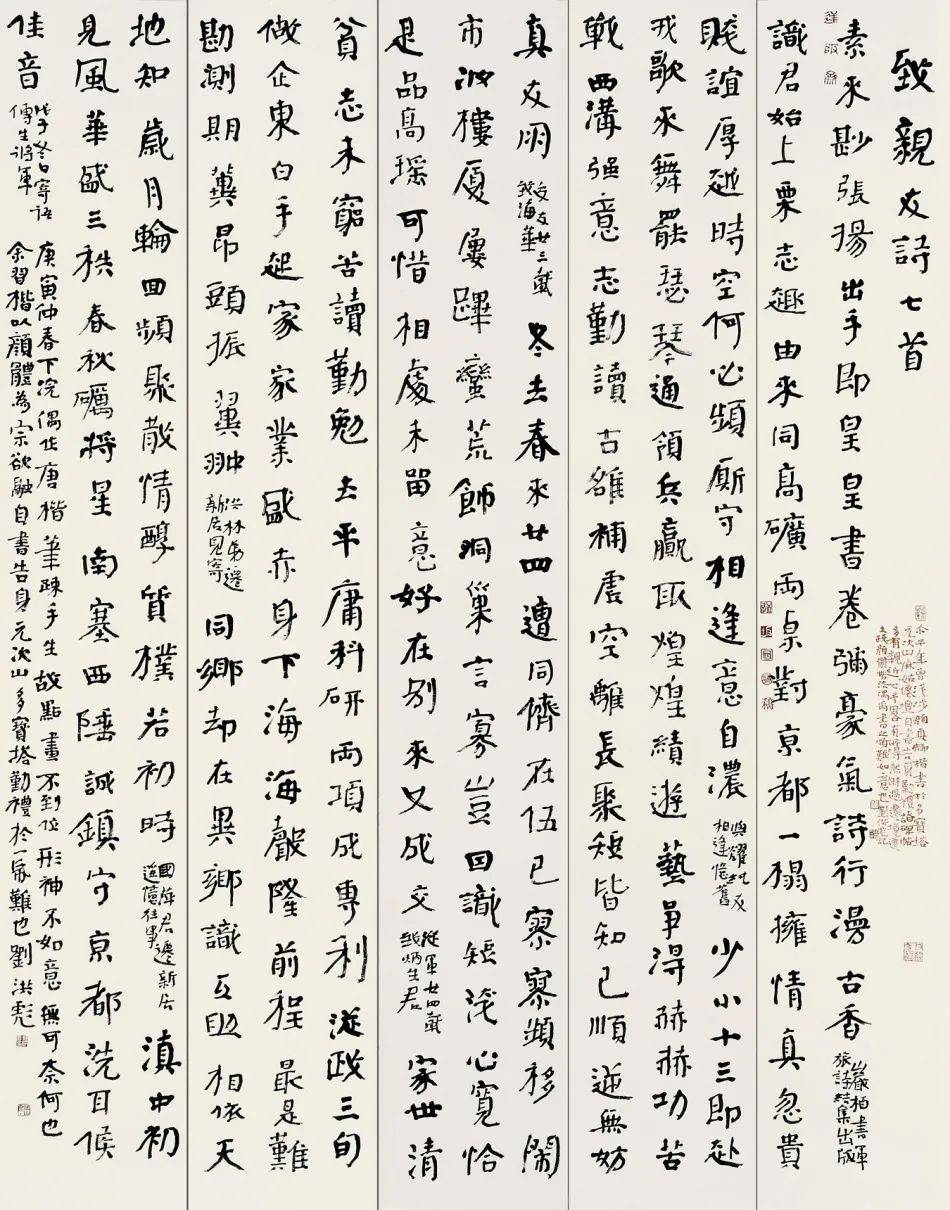 致親友詩七首
素來尠張揚出手即皇皇書卷彌豪氣詩行漫古香
柏書軍
旅詩結集出版
識君始上栗志趣由來同高礦兩桌對京都一榻擁情真忽貴
賤誼厚越時空何必頻廝守相逢意自濃
與耀凱友
相逢憶舊
少小十三即赴
戎歌來舞罷瑟琴通領兵贏取煌煌績遊藝爭得赫赫功苦
戰西溝強意志勤讀古雒補虛空離長聚短皆知己順逆無妨
真友朋
交友廿三載
致海華
冬去春來廿四遭同儕在伍已寥寥頻移鬧
市汝樓廈屢蹕蠻荒飾洞巢言寡豈因識短淺心寬恰
是品高瑶可惜相處未留意好在別來又成交
從軍廿四載
致炳生君
家世清
貧志未窮苦讀勤勉去平庸科研兩項成專利從政三旬
做企東白手起家家業盛赤身下海海聲隆前程最是難
勘測期冀昂頭振翼翀
洪林弟遷
新居見寄
同鄉却在異鄉識互暱相依天
地知歲月輪回頻聚散情醇質樸若初時
國海君遷新居
追憶往事
滇中初
見風華盛三秩春秋礪將星南塞西陲誠鎮守京都洗耳候
佳音
戊子冬日寄語
傅生將軍
庚寅仲春下浣偶作唐楷筆疎手生故點畫不到位形神不如意無可奈何也
余習楷以顏體為宗欲融自書告身元次山多寶塔勤禮於一家難也劉洪彪